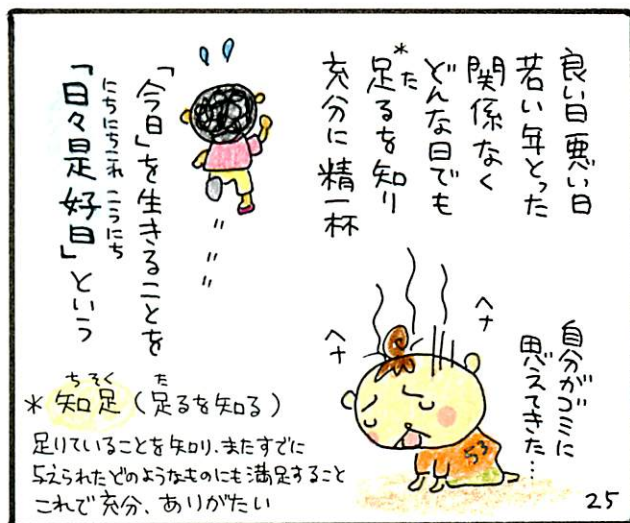 良い日悪い日
若い年とった
関係なく
どんな日でも
*足るを知り
た
充分に精一杯
「今日」を生きることを
「日々是好日」という
にちにちこれ こうにち
自分がゴミに
思えてきた…
ヘナ
ヘナ
53
ちそく た
*知足(足るを知る)
足りていることを知り、またすでに
与えられたどのようなものにも満足すること
これで充分、ありがたい
25